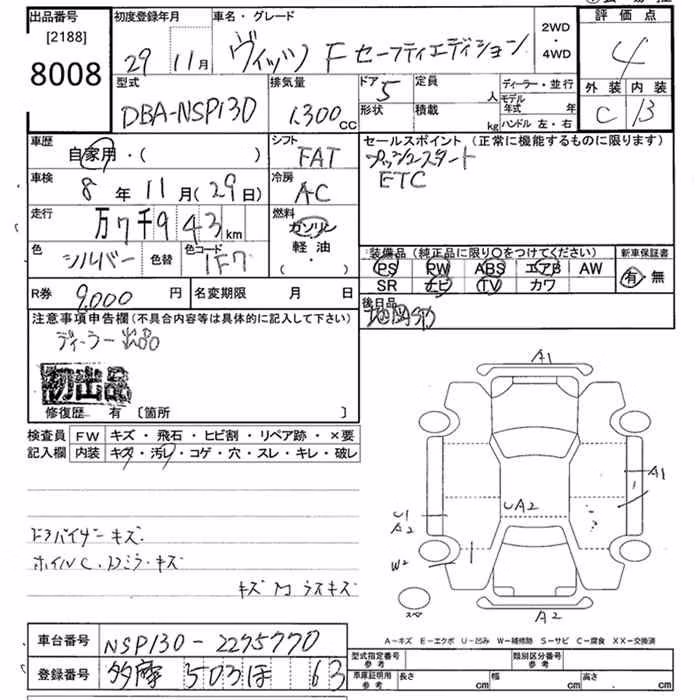 出品番号 初度登録年月 車名・グレード 2WD・4WD 評価点
[2188]
8008
29年 11月 ヴィッツ F セーフティエディション 4
型式 排気量 ドア 5 定員 人 ディーラー・並行 外装 内装
DBA-NSP130 1,300cc 形状 積載 kg モデル年式 年 C B
ハンドル 左・右
車歴 シフト セールスポイント (正常に機能するものに限ります)
自家用・( ) FAT プッシュスタート
車検 冷房 ETC
8年 11月(29日) AC
走行 燃料
万7千943km ガソリン
軽油
色 シルバー 色替 色コード 1F7
装備品 (純正品に限り○をつけてください) 新車保証書
PS PW ABS エアB AW 有・無
SR ナビ TV カワ
R券 9,000円 名変期限 月 日
後日品
注意事項申告欄(不具合内容等は具体的に記入して下さい)
ディーラー出品
初出品
修復歴 有 〔箇所 〕
検査員 FW キズ・飛石・ヒビ割・リペア跡・×要
記入欄 内装 キズ・汚レ・コゲ・穴・スレ・キレ・破レ
A1
A1
UA2
U1
A2
W2
スペア
A2
ドアバイザーキズ
ホイルC.Dミラーキズ
A-キズ E-エクボ U-凹み W-補修跡 S-サビ C-腐食 XX-交換済
車台番号 NSP130-2275770
登録番号 多摩 503 ほ 63
型式指定番号 参考 類別区分番号 参考
車庫証明用 参考 長さ cm 幅 cm 高さ cm